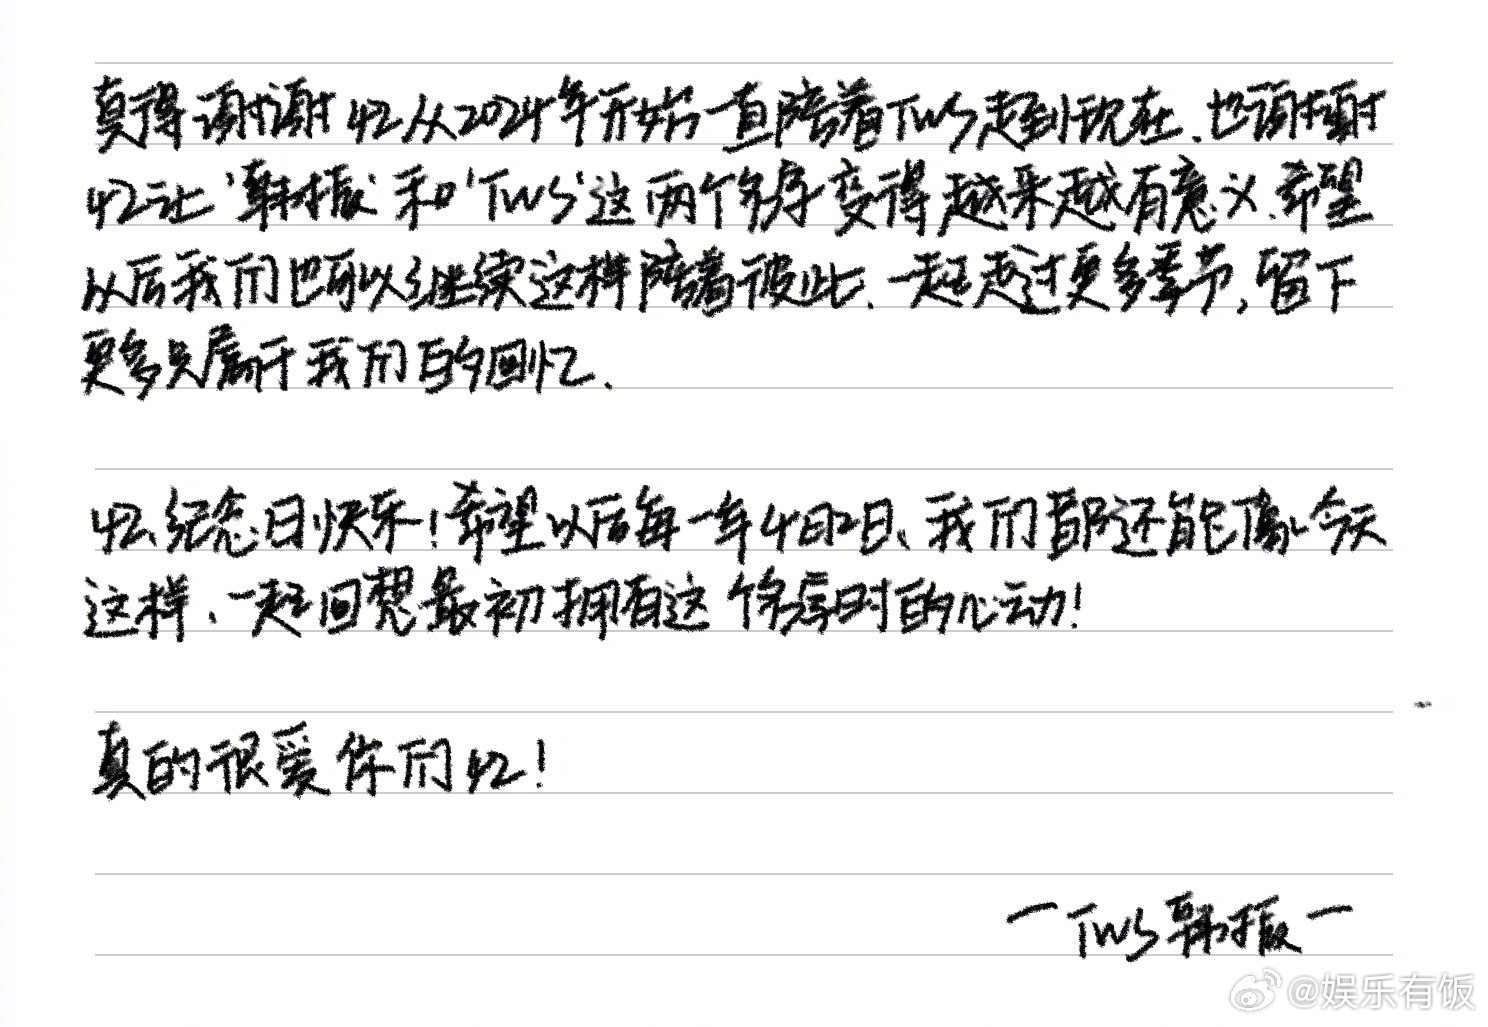 真得谢谢42从2024年开始一直陪着TWS走到现在.也谢谢
42让'韩振'和'TWS'这两个名字变得越来越有意义.希望
以后我们也可以继续这样陪着彼此.一起走过更多季节,留下
更多只属于我们的回忆.
42纪念日快乐!希望以后每一年4月2日、我们都还能像今天
这样、一起回想最初拥有这个名字时的心动!
真的很爱你们42!
一TWS韩振一
@娱乐有饭